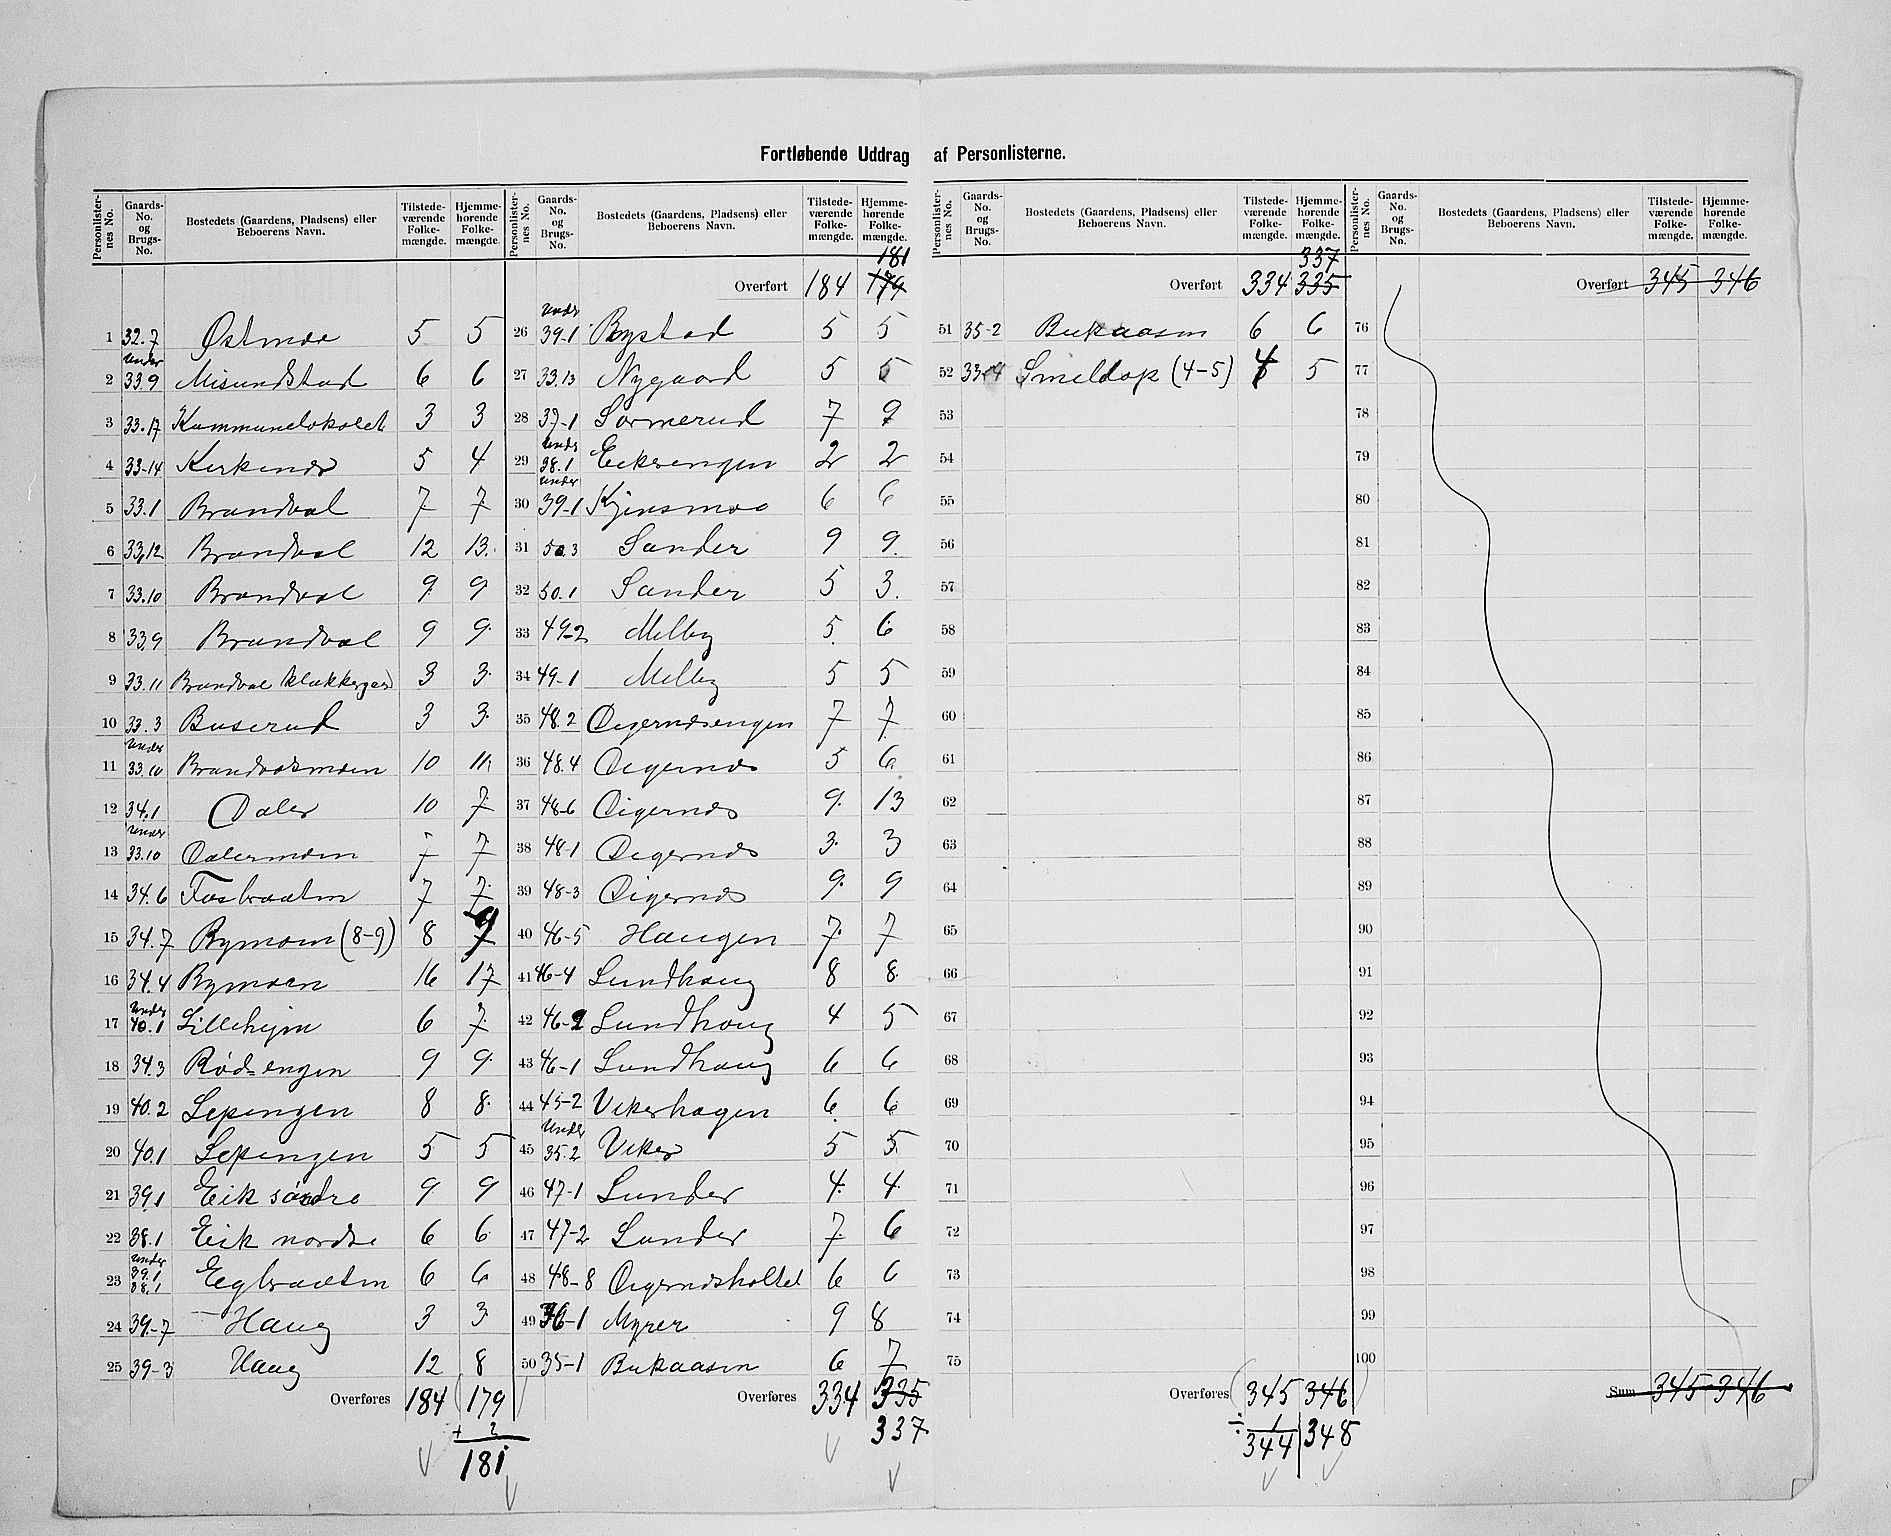 Fortløbende Uddrag af Personlisterne.
Personlister-nes No. | Gaards-No. og Brugs-No. | Bostedets (Gaardens, Pladsens) eller Beboerens Navn. | Tilstede-værende Folke-mængde. | Hjemme-hørende Folke-mængde.
1 32.7 Østmoe 5 5
2 under 33.9 Misundstad 6 6
3 33.17 Kommunelokalet 3 3
4 33-14 Kirkenær 5 4
5 33.1 Brandval 7 7
6 33,12 Brandval 12 13
7 33.10 Brandval 9 9
8 33,9 Brandval 9 9
9 33.11 Brandval klokkergrd 3 3
10 33.3 Buserud 3 3
11 under 33.10 Brandvalsmoen 10 11
12 34.1 Daler 10 7
13 under 33.10 Dalermoen 7 7
14 34.6 Fosbraaten 7 7
15 34.7 Bymoen (8-9) 8 9
16 34.4 Bymoen 16 17
17 under 40.1 Lillehejm 6 7
18 34.3 Rød-engen 9 9
19 40.2 Sepengen 8 8
20 40.1 Sepengen 5 5
21 39.1 Eik søndre 9 9
22 38.1 Eik nordre 6 6
23 under 39.1 38.1 Egbraaten 6 6
24 39.-7 Haug 3 3
25 39-3 Haug 12 8
Overføres 184 179
+ 2
181
Personlister-nes No. | Gaards-No. og Brugs-No. | Bostedets (Gaardens, Pladsens) eller Beboerens Navn. | Tilstede-værende Folke-mængde. | Hjemme-hørende Folke-mængde.
181
Overført 184 179
26 under 39.1 Bystad 5 5
27 33.13 Nygaard 5 5
28 37-1 Sormerud 7 9
29 under 38.1 Eiksengen 2 2
30 under 39-1 Kjensmoe 6 6
31 50.3 Sander 9 9
32 50.1 Sander 5 3
33 49-2 Melby 5 6
34 49-1 Melby 5 5
35 48.2 Digernæsengen 7 7
36 48.4 Digernæs 5 6
37 48-6 Digernæs 9 13
38 48-1 Digernæs 3 3
39 48-3 Digernæs 9 9
40 46-5 Haugen 7 7
41 46-4 Lundhaug 8 8
42 46-2 Lundhaug 4 5
43 46-1 Lundhaug 6 6
44 45-2 Vikerhagen 6 6
45 under 35.2 Viker 5 5
46 47-1 Sunder 4 4
47 47-2 Sunder 7 6
48 48-8 Digernæsholtet 6 6
49 36-1 Myrer 9 8
50 35-1 Bukaasen 6 7
Overføres 334 335
337
Personlister-nes No. | Gaards-No. og Brugs-No. | Bostedets (Gaardens, Pladsens) eller Beboerens Navn. | Tilstede-værende Folke-mængde. | Hjemme-hørende Folke-mængde.
337
Overført 334 335
51 35-2 Bukaasen 6 6
52 33-4 Smeldop (4-5) 4 5
53
54
55
56
57
58
59
60
61
62
63
64
65
66
67
68
69
70
71
72
73
74
75
Overføres 345 346
÷ 1
344 348
Personlister-nes No. | Gaards-No. og Brugs-No. | Bostedets (Gaardens, Pladsens) eller Beboerens Navn. | Tilstede-værende Folke-mængde. | Hjemme-hørende Folke-mængde.
Overført 345 346
76
77
78
79
80
81
82
83
84
85
86
87
88
89
90
91
92
93
94
95
96
97
98
99
100
Sum 345 346